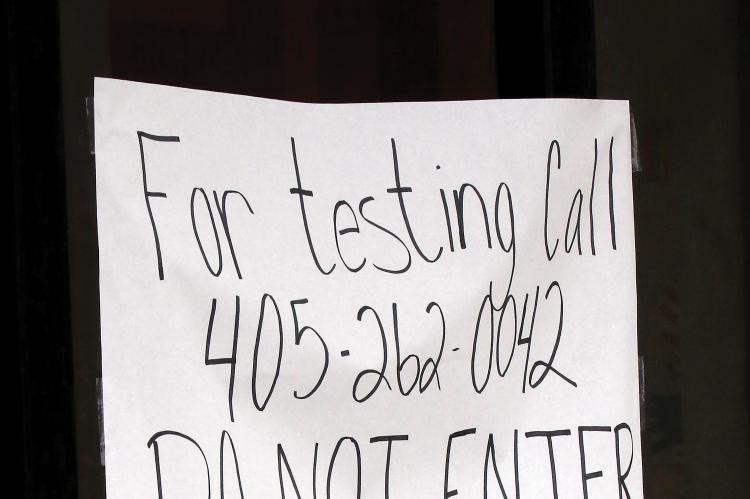 For testing Call
405-262-0042
DO NOT ENTER